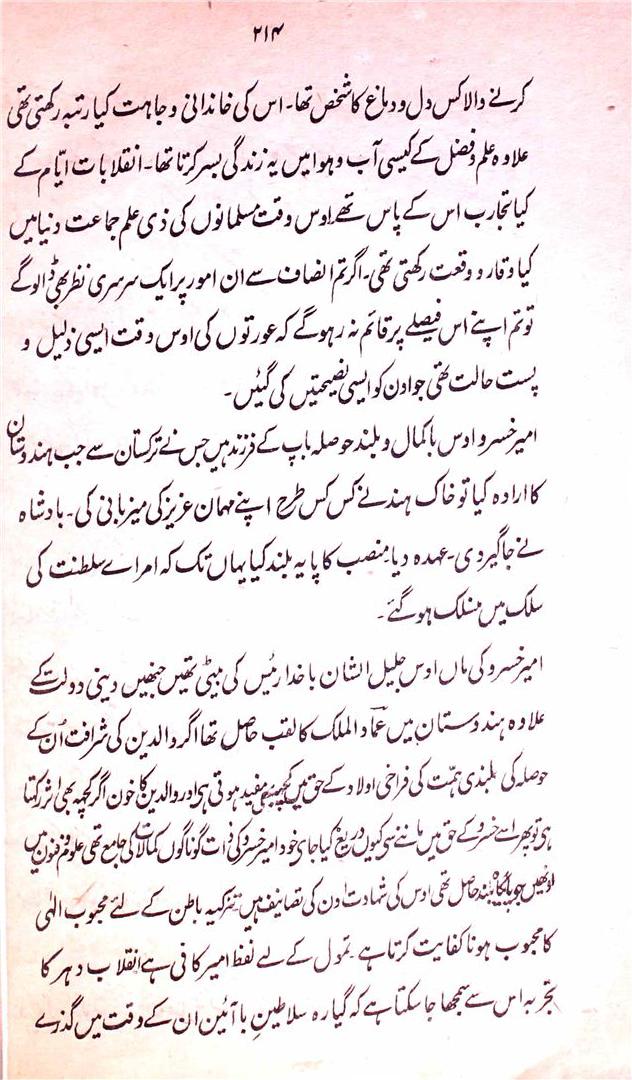 ۲۱۴
کرنے والا کس دل و دماغ کا شخص تھا۔ اس کی خاندانی وجاہت کیا رتبہ رکھتی تھی
علاوہ علم و فضل کے کیسی آب و ہوا میں یہ زندگی بسر کرتا تھا۔ انقلابات ایّام کے
کیا تجارب اس کے پاس تھے اوس وقت مسلمانوں کی ذی علم جماعت دنیا میں
کیا وقار و وقعت رکھتی تھی۔ اگر تم انصاف سے ان امور پر ایک سرسری نظر بھی ڈالو گے
تو تم اپنے اس فیصلے پر قائم نہ رہو گے کہ عورتوں کی اوس وقت ایسی ذلیل و
پست حالت تھی جو اون کو ایسی نصیحتیں کی گئیں۔
امیر خسرو اوس باکمال و بلند حوصلہ باپ کے فرزند ہیں جس نے ترکستان سے جب ہندوستان
کا ارادہ کیا تو خاک ہند نے کس کس طرح اپنے مہمان عزیز کی میزبانی کی۔ بادشاہ
نے جاگیر دی۔ عہدہ دیا۔ منصب کا پایہ بلند کیا یہاں تک کہ امراے سلطنت کی
سلک میں منسلک ہو گئے۔
امیر خسرو کی ماں اوس جلیل الشان باخدا رئیس کی بیٹی تھیں جنھیں دینی دولت کے
علاوہ ہندوستان میں عماد الملک کا لقب حاصل تھا اگر والدین کی شرافت اُن کے
حوصلہ کی بلندی ہمّت کی فراخی اولاد کے حق میں کچھ بھی مفید ہوتی ہی اور والدین کا خون اگر کچھ بھی اثر رکھتا
ہی تو پھر اسے خسرو کے حق میں ماننے سی کیوں دریغ کیا جاے خود امیر خسرو کی ذات گوناگوں کمالات کی جامع تھی علوم و فنون میں
اونھیں جو پائگاہ بلند حاصل تھی اوس کی شہادت اون کی تصانیف ہیں تزکیہ باطن کے لئے محبوب الٰہی
کا محبوب ہونا کفایت کرتا ہے۔ تمول کے لیے لفظ امیر کافی ہے انقلاب دہر کا
تجربہ اس سے سمجھا جا سکتا ہے کہ گیارہ سلاطین باآئین ان کے وقت میں گذرے